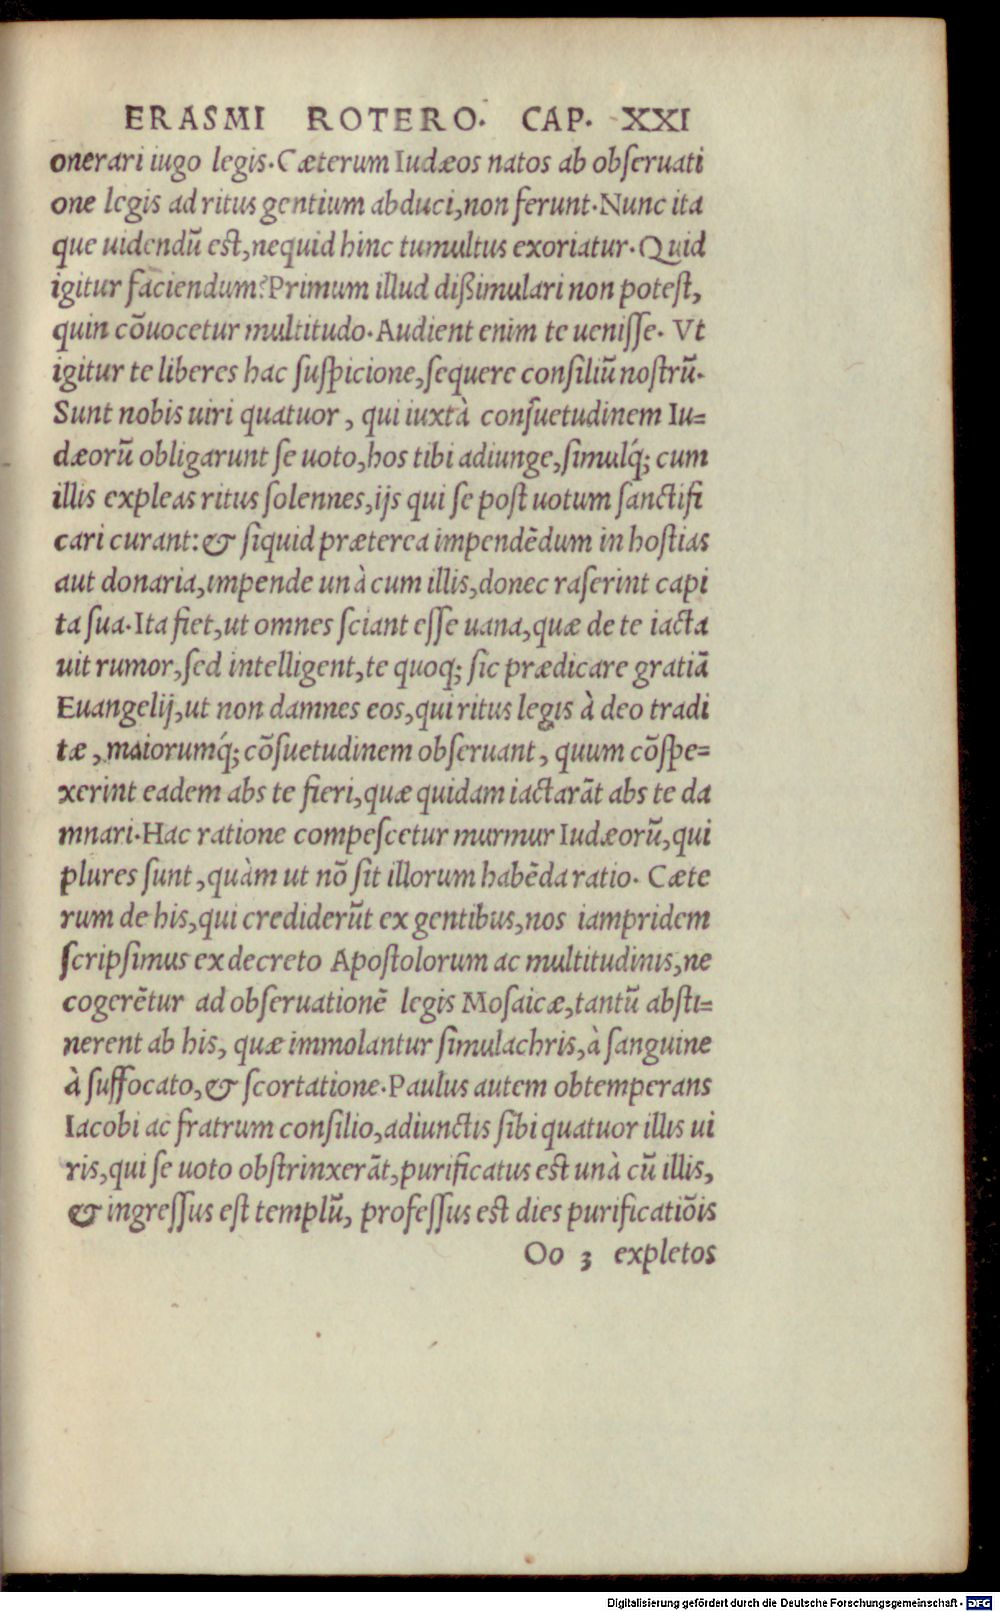 ERASMI ROTERO. CAP. XXI
onerari iugo legis. Cæterum Iudæos natos ab obſeruati
one legis ad ritus gentium abduci, non ferunt. Nunc ita
que uidendũ eſt, nequid hinc tumultus exoriatur. Quid
igitur faciendum? Primum illud dißimulari non poteſt,
quin cõuocetur multitudo. Audient enim te ueniſſe. Vt
igitur te liberes hac ſuſpicione, ſequere conſiliũ noſtrũ.
Sunt nobis uiri quatuor, qui iuxtà conſuetudinem Iu=
dæorũ obligarunt ſe uoto, hos tibi adiunge, ſimulq́; cum
illis expleas ritus ſolennes, ijs qui ſe poſt uotum ſanctifi
cari curant: & ſiquid præterea impendẽdum in hoſtias
aut donaria, impende unà cum illis, donec raſerint capi
ta ſua. Ita fiet, ut omnes ſciant eſſe uana, quæ de te iacta
uit rumor, ſed intelligent, te quoq; ſic prædicare gratiã
Euangelij, ut non damnes eos, qui ritus legis à deo tradi
tæ, maiorumq́; cõſuetudinem obſeruant, quum cõſpe=
xerint eadem abs te fieri, quæ quidam iactarãt abs te da
mnari. Hac ratione compeſcetur murmur Iudæorũ, qui
plures ſunt, quàm ut nõ ſit illorum habẽda ratio. Cæte
rum de his, qui crediderũt ex gentibus, nos iampridem
ſcripſimus ex decreto Apoſtolorum ac multitudinis, ne
cogerẽtur ad obſeruationẽ legis Moſaicæ, tantũ abſti=
nerent ab his, quæ immolantur ſimulachris, à ſanguine
à ſuffocato, & ſcortatione. Paulus autem obtemperans
Iacobi ac fratrum conſilio, adiunctis ſibi quatuor illis ui
ris, qui ſe uoto obſtrinxerãt, purificatus eſt unà cũ illis,
& ingreſſus eſt templũ, profeſſus eſt dies purificatiõis
Oo 3 expletos
Digitalisierung gefördert durch die Deutsche Forschungsgemeinschaft - DFG